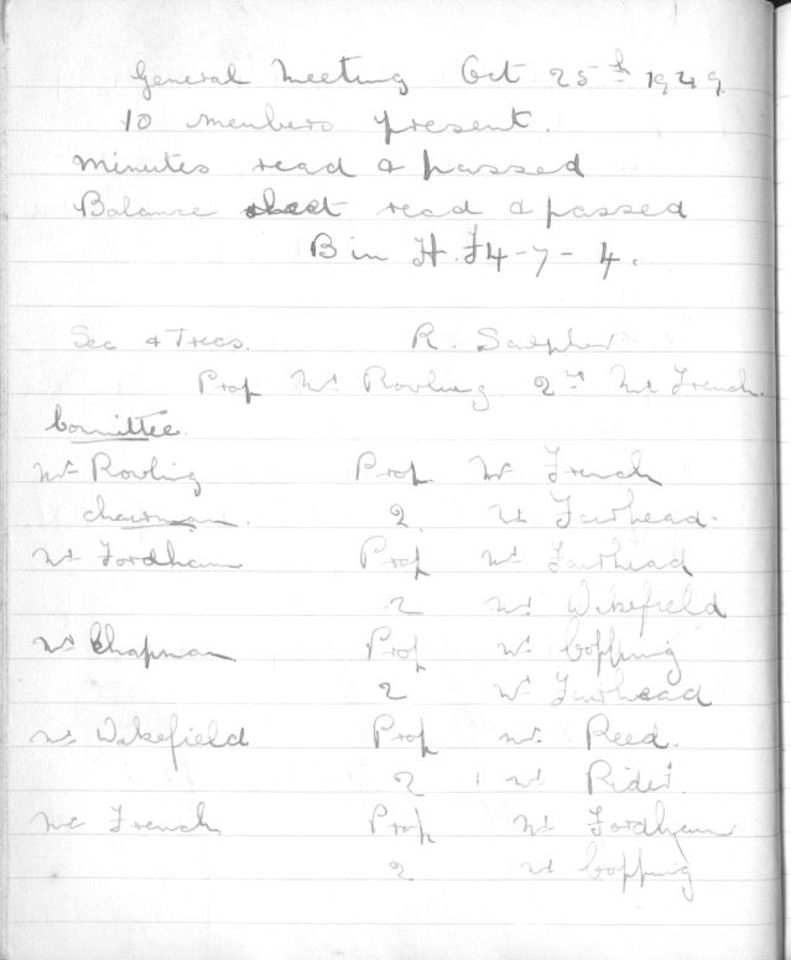 General Meeting Oct 25th 1949
10 members present.
Minutes read & passed
Balance sheet read & passed
B in H. £4-7-4.
Sec & Treas. R.
Prop Mr Rowling 2nd Mr French.
Committee
Mr Rowling Prop Mr French
chairman. 2 Mr Fairhead.
Mr Fordham Prop Mr Fairhead
2 Mr Wakefield
Mr Chapman Prop Mr Copping
2 Mr Fairhead
Mr Wakefield Prop Mr. Reed.
2 Mr Rider.
Mr French Prop Mr Fordham
2 Mr Copping